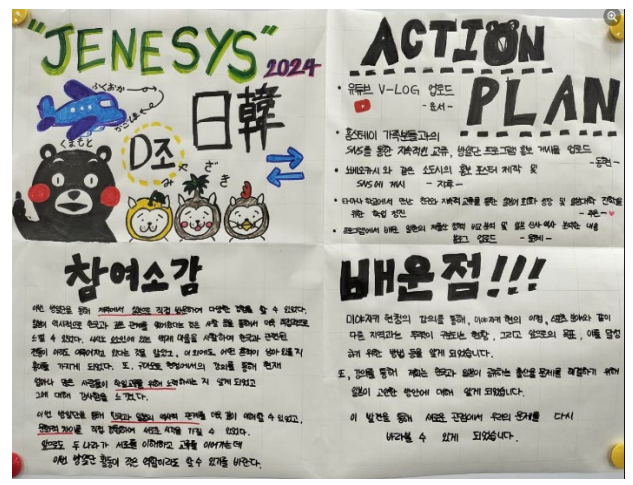 "JENESYS"
2024
日韓
ふくおか
かごしま
くまもと
D조
みやざき
ACTION
PLAN
• 유튜브 V-LOG 업로드
- 윤서 -
• 홈스테이 가족분들과의
SNS를 통한 지속적인 교류, 방일단 프로그램 홍보 게시물 업로드
와 같은 소도시의 홍보 포스터 제작 및
SNS에 게시 - 지후 -
학교에서 만난 친구와 지속적 교류를 통한 일본어 회화 성장 및 일본대학 진학을
위한 학업 정진
프로그램에서 배운 일본의 저출산 정책 비교 분석 및 일본 신사 역사 분석한 내용
블로그 업로드
참여소감
이번 방일단을 통해 제주에서 일본으로 직접 방문하여 다양한 경험을 할 수 있었다.
일본이 역사적으로 한국과 깊은 관계를 맺어왔다는 것은 사실 등을 통해서 더욱 직접적으로
느낄 수 있었다. 백제 마을을 시찰하며 한국과 관련된
것들이 아직도 이어져오고 있다는 것을 알았고, 이 외에도 어떤 흔적이 남아 있을지
흥미를 가지게 되었다. 또, 현청에서의 강의를 통해 현재
얼마나 많은 사람들이 한일교류를 위해 노력하시는 지 알게 되었고
그에 대해 감사함을 느꼈다.
이번 방일단을 통해 한국과 일본의 역사적 관계를 더욱 깊이 이해할 수 있었고,
문화적 차이를 직접 경험하며 새로운 시각을 가질 수 있었다.
앞으로도 두 나라가 서로를 이해하고 교류를 이어가는데
이번 방일단 활동이 작은 역할이라도 할 수 있기를 바란다.
배운점!!!
미야자키 현청의 강의를 통해, 미야자키 현의 이점, 새로운 분야와 같이
다른 지역과는 뚜렷이 구분되는 현황, 그리고 앞으로의 목표, 이를 달성
하기 위한 방법 등을 알게 되었습니다.
또, 강의를 통해 저희는 한국과 일본이 겪는 저출산율 문제를 해결하기 위해
일본이 고안한 방안에 대해 알게 되었습니다.
이 발견을 통해 새로운 관점에서 우리의 문제를 다시
바라볼 수 있게 되었습니다.